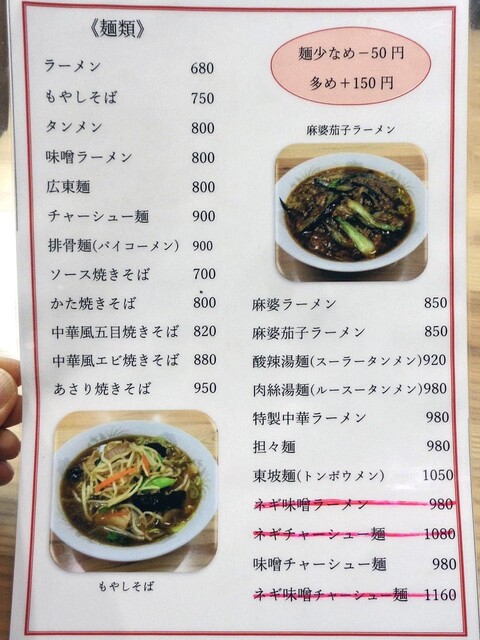 《麺類》
ラーメン 680
もやしそば 750
タンメン 800
味噌ラーメン 800
広東麺 800
チャーシュー麺 900
排骨麺(パイコーメン) 900
ソース焼きそば 700
かた焼きそば 800
中華風五目焼きそば 820
中華風エビ焼きそば 880
あさり焼きそば 950
もやしそば
麺少なめ－50円
多め＋150円
麻婆茄子ラーメン
麻婆ラーメン 850
麻婆茄子ラーメン 850
酸辣湯麺(スーラータンメン)920
肉絲湯麺(ルースータンメン)980
特製中華ラーメン 980
担々麺 980
東坡麺(トンポウメン) 1050
ネギ味噌ラーメン 980
ネギチャーシュー麺 1080
味噌チャーシュー麺 980
ネギ味噌チャーシュー麺 1160